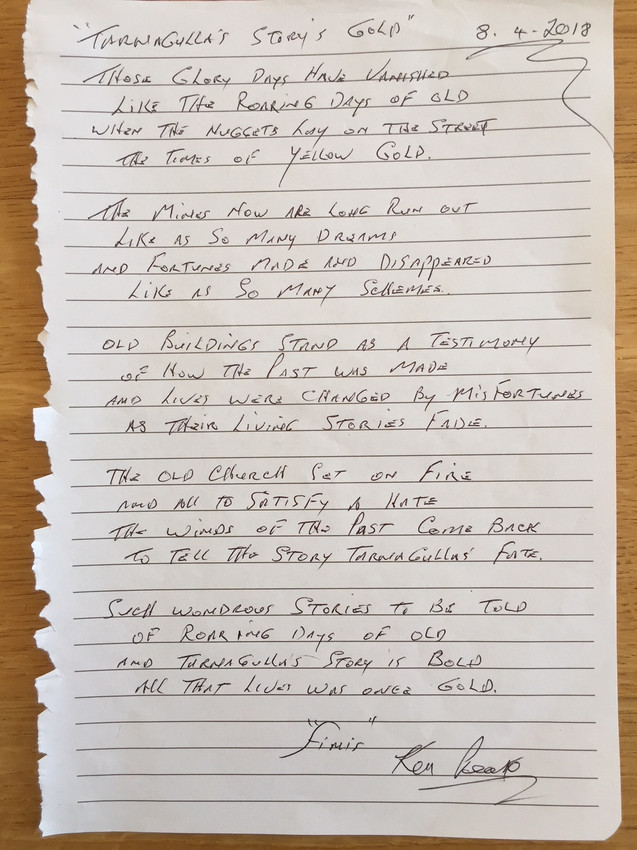 "Tarnagulla's Story's Gold" 8.4-2018
Those Glory Days Have Vanished
Like The Roaring Days of Old
When The Nuggets Lay on The Street
The Times of Yellow Gold.
The Mines Now are Long Run out
Like as So Many Dreams
and Fortunes Made and Disappeared
Like as So Many Schemes.
Old Buildings Stand as a Testimony
of How The Past was Made
and Lives were Changed By Misfortunes
as Their Living Stories Fade.
The Old Church Set on Fire
and all to Satisfy a Hate
The Winds of The Past Come Back
To Tell The Story Tarnagullas' Fate.
Such Wondrous Stories to Be Told
of Roaring Days of Old
and Tarnagulla's Story is Bold
all That Lives was once Gold.
"Finis"
Ken